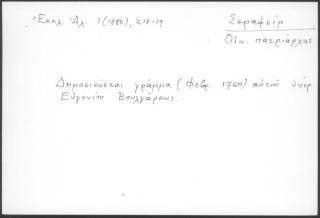 Ἐκκλ. Ἀλ. 1 (1880), 218-19
Σεραφείμ
Οἰκ. πατριάρχης
Δημοσιεύεται γράμμα (Φεβρ. 1760) αὐτοῦ ὑπέρ
Εὐγενίου Βουλγάρεως.